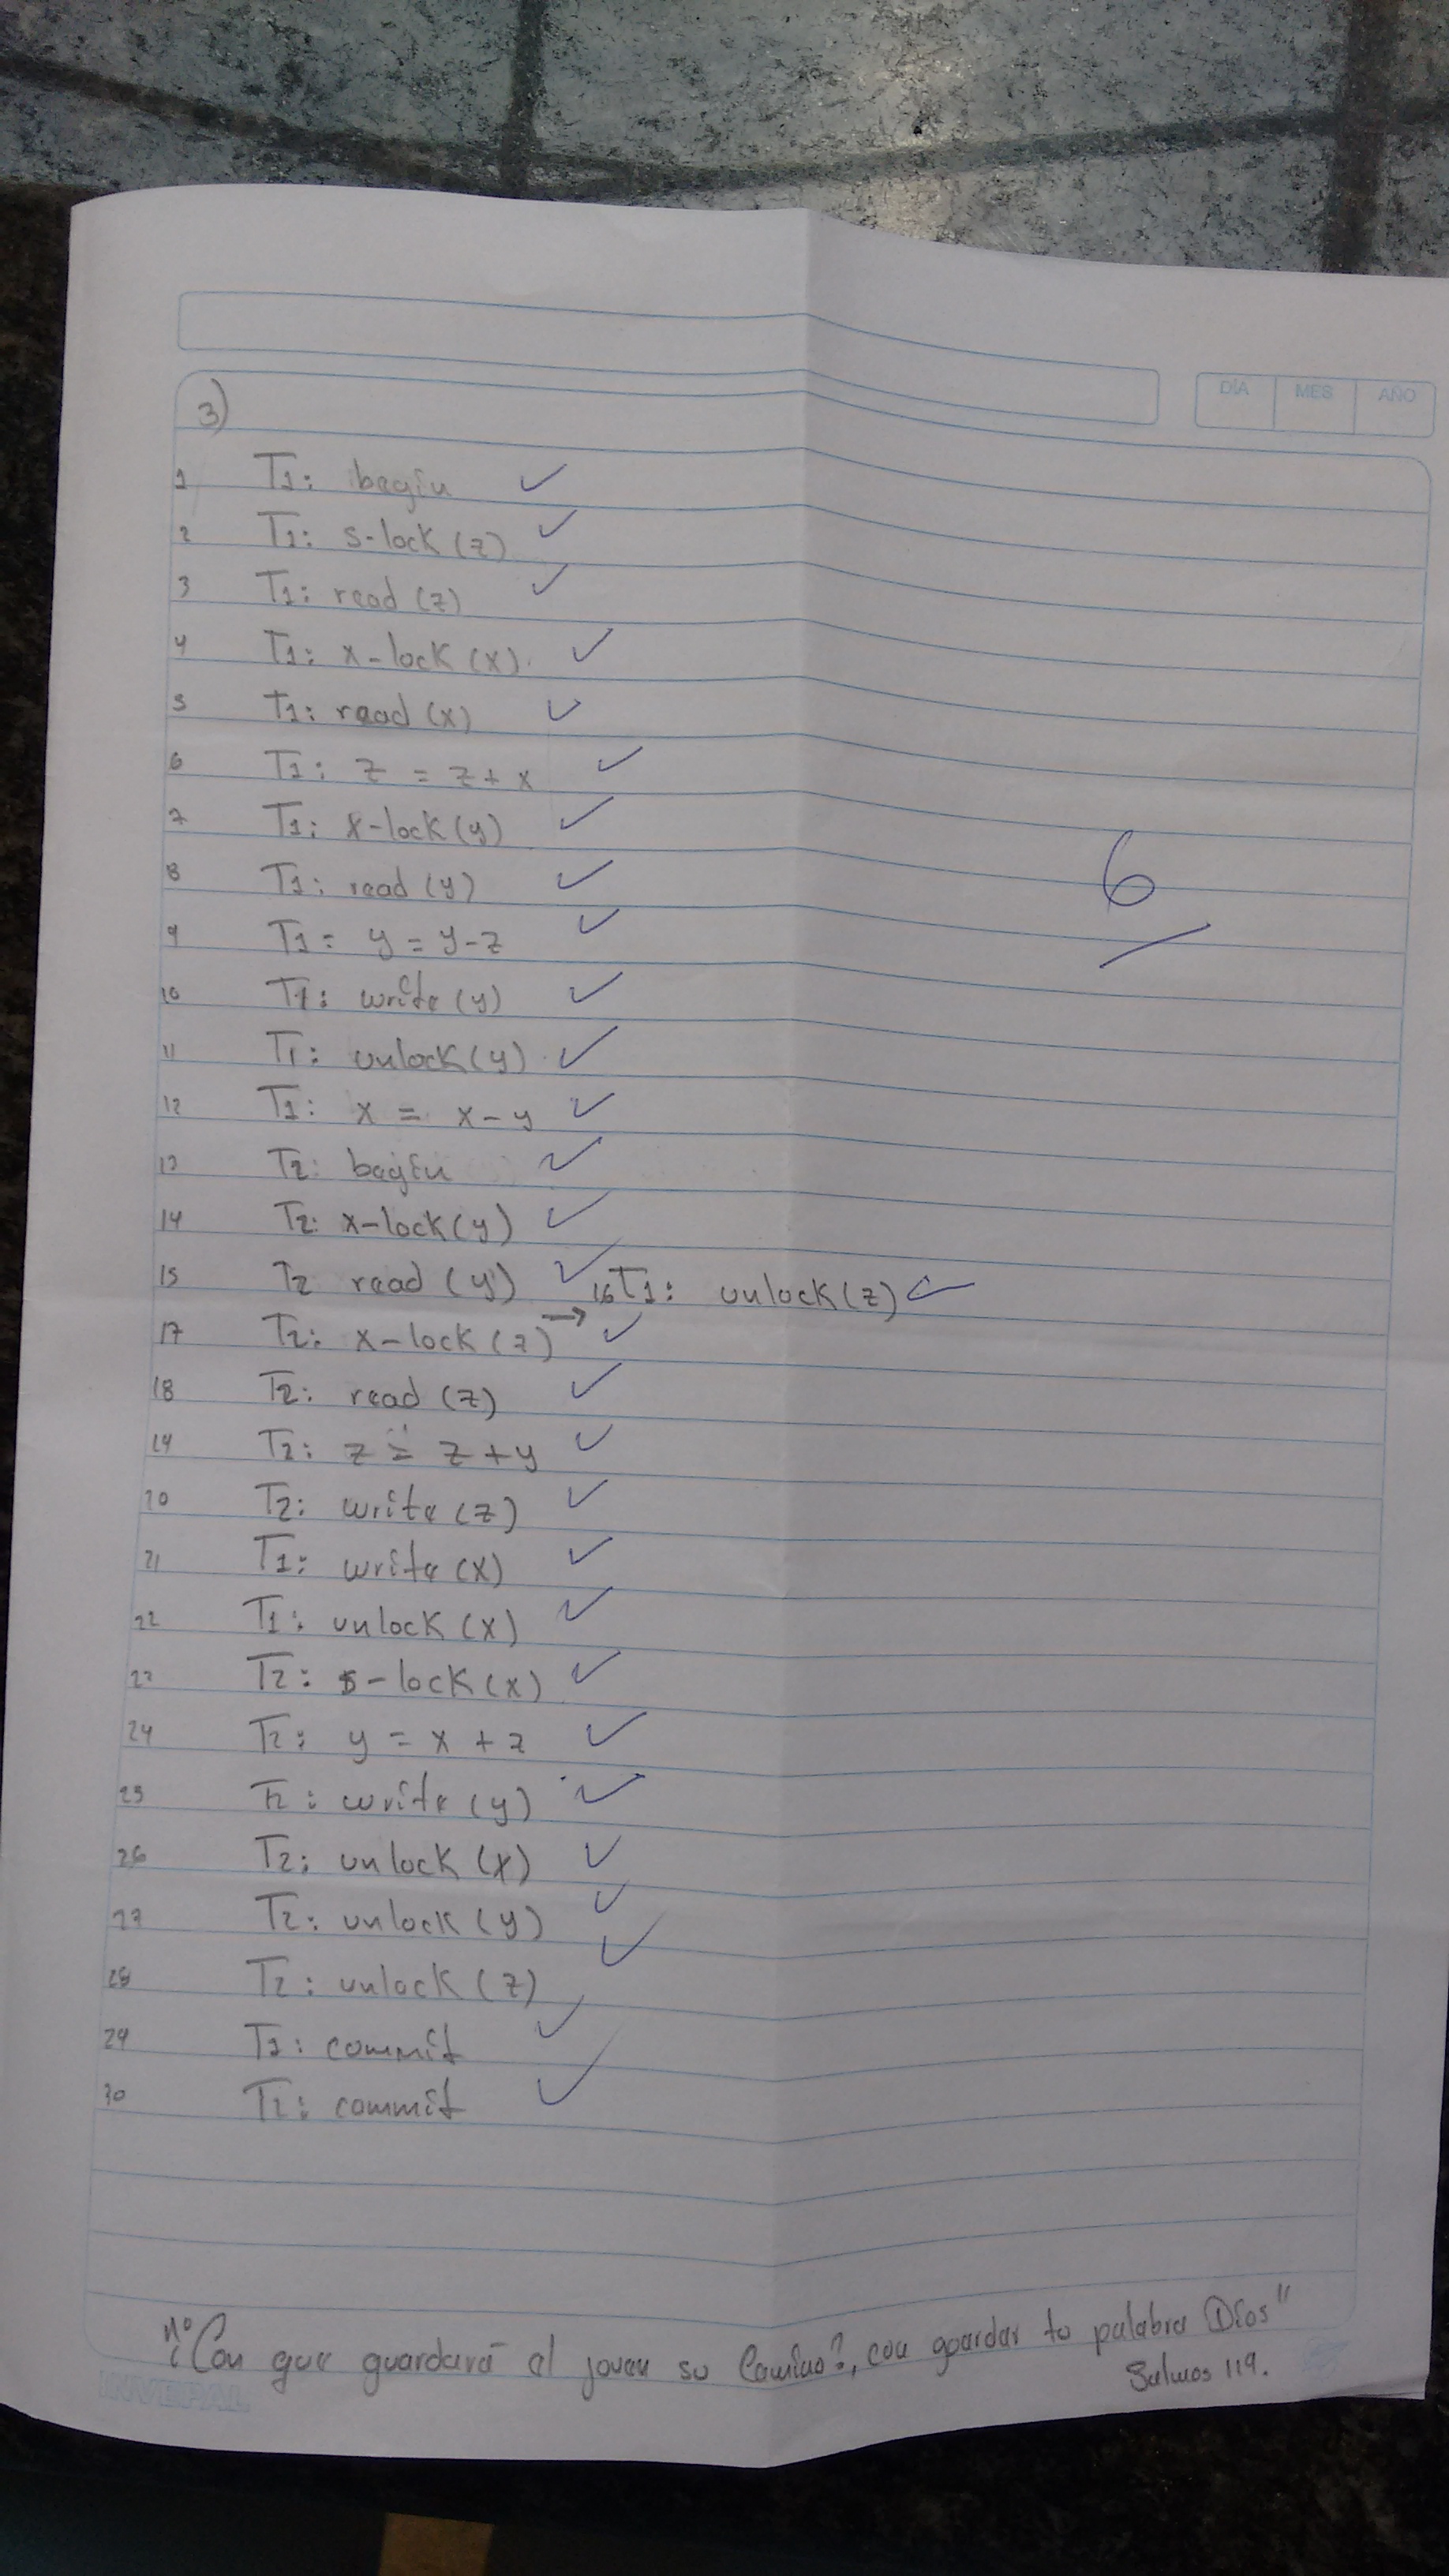 DÍA MES AÑO
3)
1 T1: begin
2 T1: s-lock (z)
3 T1: read (z)
4 T1: x-lock (x).
5 T1: read (x)
6 T1: z = z + x
7 T1: x-lock (y)
8 T1: read (y)
9 T1: y = y-z
10 T1: write (y)
11 T1: unlock (y)
12 T1: x = x-y
13 T2: begin
14 T2: x-lock (y)
15 T2 read (y) 16 T1: unlock (z)
17 T2: x-lock (z) →
18 T2: read (z)
19 T2: z = z + y
20 T2: write (z)
21 T1: write (x)
22 T1: unlock (x)
23 T2: s-lock (x)
24 T2: y = x + z
25 T2: write (y)
26 T2: unlock (x)
27 T2: unlock (y)
28 T2: unlock (z)
29 T1: commit
30 T2: commit
6
"¿Con que guardará el joven su Camino?, con guardar tu palabra Dios"
Salmos 119.
INVEPAL